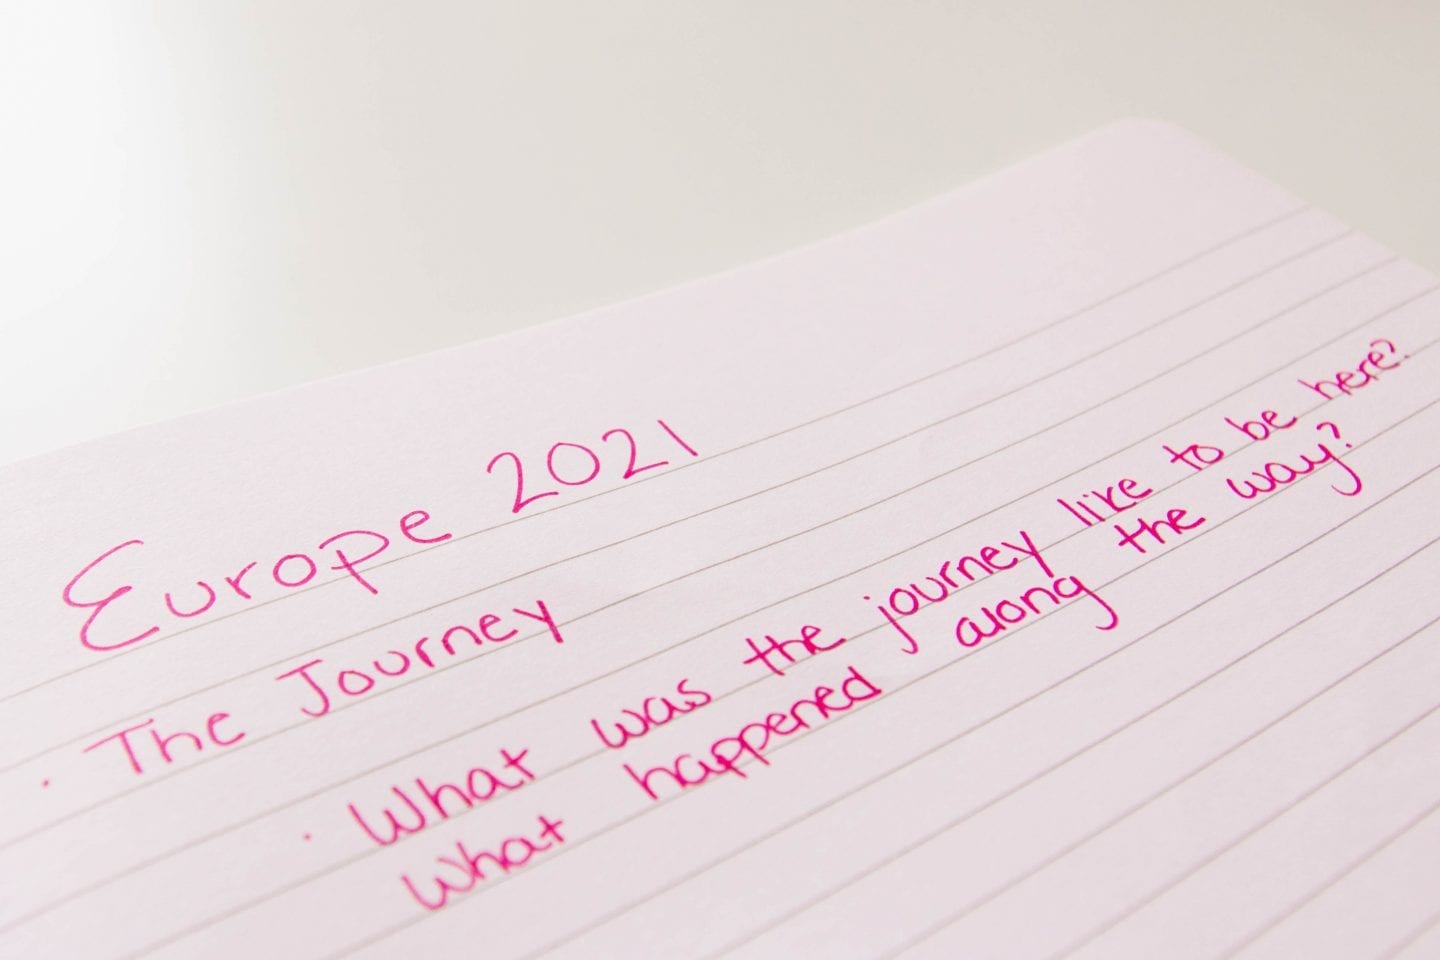 Europe 2021
· The Journey
· What was the journey like to be here?
What happened along the way?